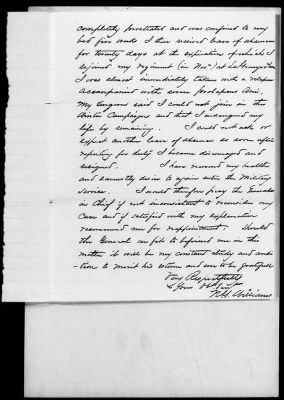 completely prostrated and was confined to my
bed five weeks I then secured leave of absence
for twenty days at the expiration of which I
rejoined my Regiment (in Nov) at La Grange Tenn
I was almost immediately taken with a relapse
accompanied with severe prolapsus Ani.
My Surgeons said I could not join in the
Winter Campaigns and that I endangered my
life by remaining. I could not ask or
expect another leave of absence so soon after
reporting for duty I became discouraged and
resigned. I have renewed my health
and earnestly desire to again enter the Military
Service. I would therefore pray the General
in Chief if not inconsistent to reconsider my
Case and if satisfied with my explanation
recommend me for reappointment. Should
the General see fit to befriend me in this
matter it will be my constant study and ambi-
tion to merit his esteem and ever to be grateful
Very Respectfully
Your Obt Servt
Williams